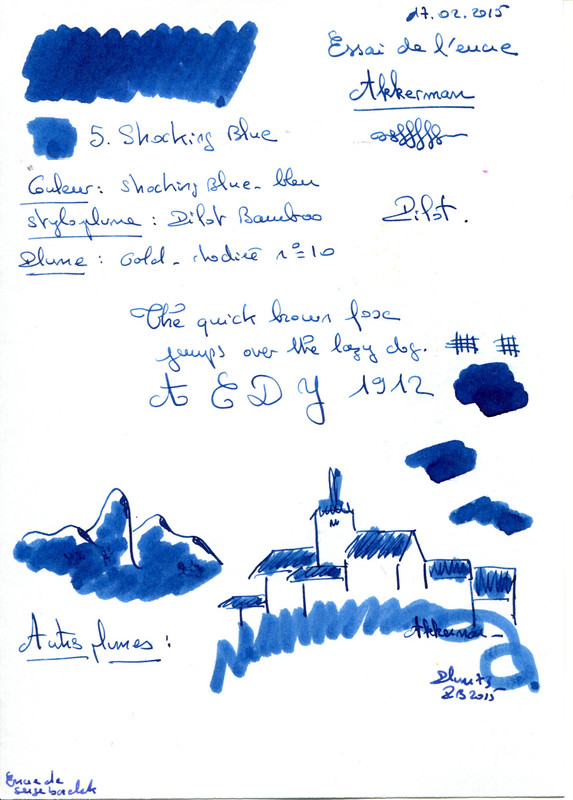 17.02.2015
Essai de l'encre
Akkerman
5. Shocking Blue
Couleur : Shocking Blue - bleu
Styloplume : Pilot Bamboo Pilot.
Plume : Gold - rhodiée n°=10
The quick brown foxe
jumps over the lazy dog.
A E D Y 1912
Autres plumes :
Akkerman
2015
Encre de